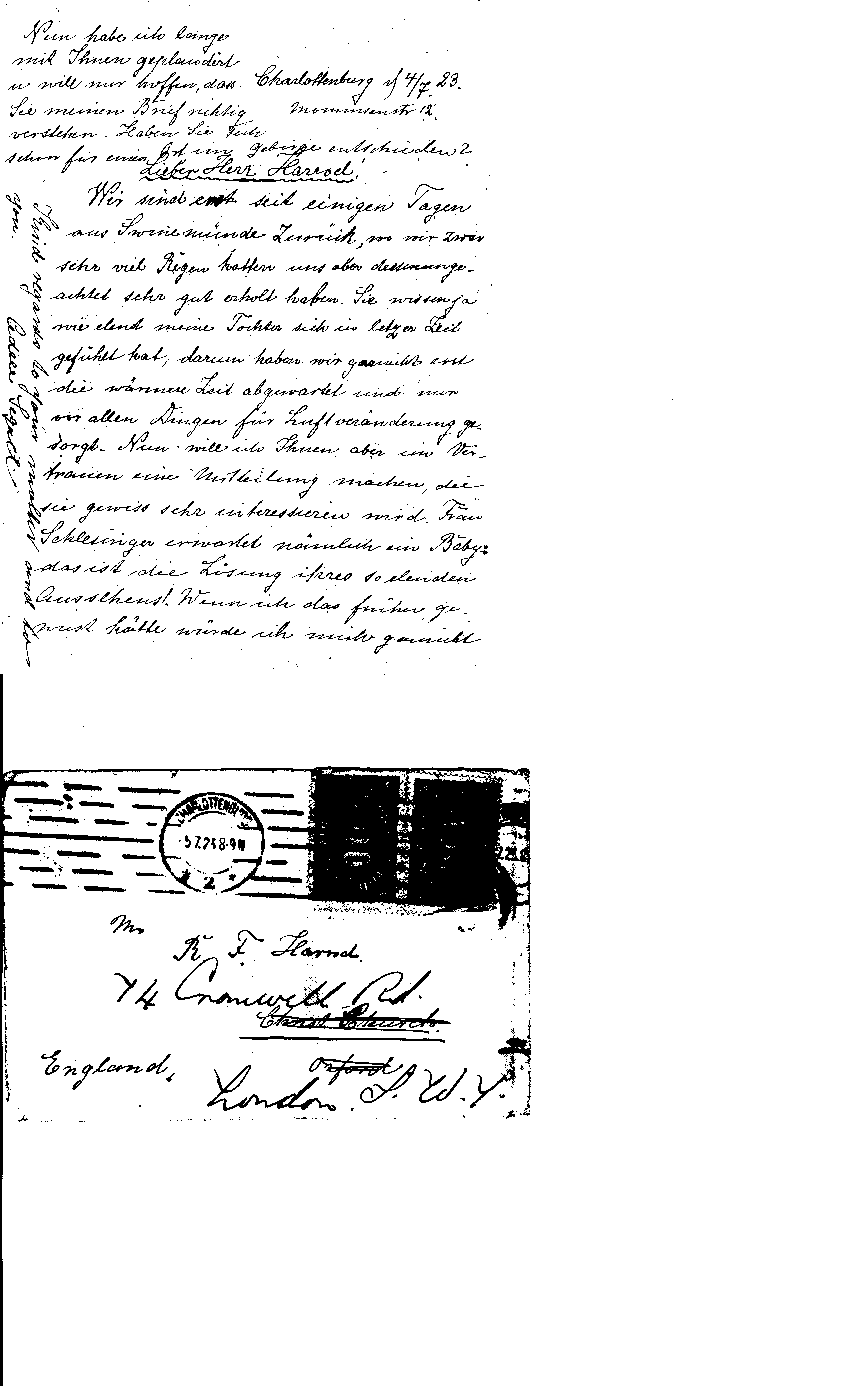 Nun habe ich lange
mit Ihnen geplaudert
u will nur hoffen, dass
Sie meinen Brief richtig
verstehen. Haben Sie sich
schon für einen Ort im Gebirge entschieden?
Charlottenburg d 4/7. 23.
Mommsenstr 12.
Lieber Herr Harrod!
Wir sind erst seit einigen Tagen
aus Swinemünde zurück, wo wir zwar
sehr viel Regen hatten uns aber dessenunge-
achtet sehr gut erholt haben. Sie wissen ja
wie elend meine Tochter sich in letzer Zeit
gefühlt hat, darum haben wir garnicht erst
die wärmere Zeit abgewartet und nur
vor allen Dingen für Luftveränderung ge-
sorgt. Nun will ich Ihnen aber im Ver-
trauen eine Mitteilung machen, die
sie gewiss sehr interessieren wird. Frau
Schlesinger erwartet nämlich ein Baby:
das ist die Lösung ihres so elenden
Aussehens! Wenn ich das früher ge-
wusst hätte würde ich mich garnicht
Kind regards to your mother and to
you.
CHARLOTTENBURG
5.7.23 8-9N
* 2 *
Mr
R. F. Harrod.
74 Cromwell Rd.
Christ Church.
England,
Oxford
London. S. W. 7.